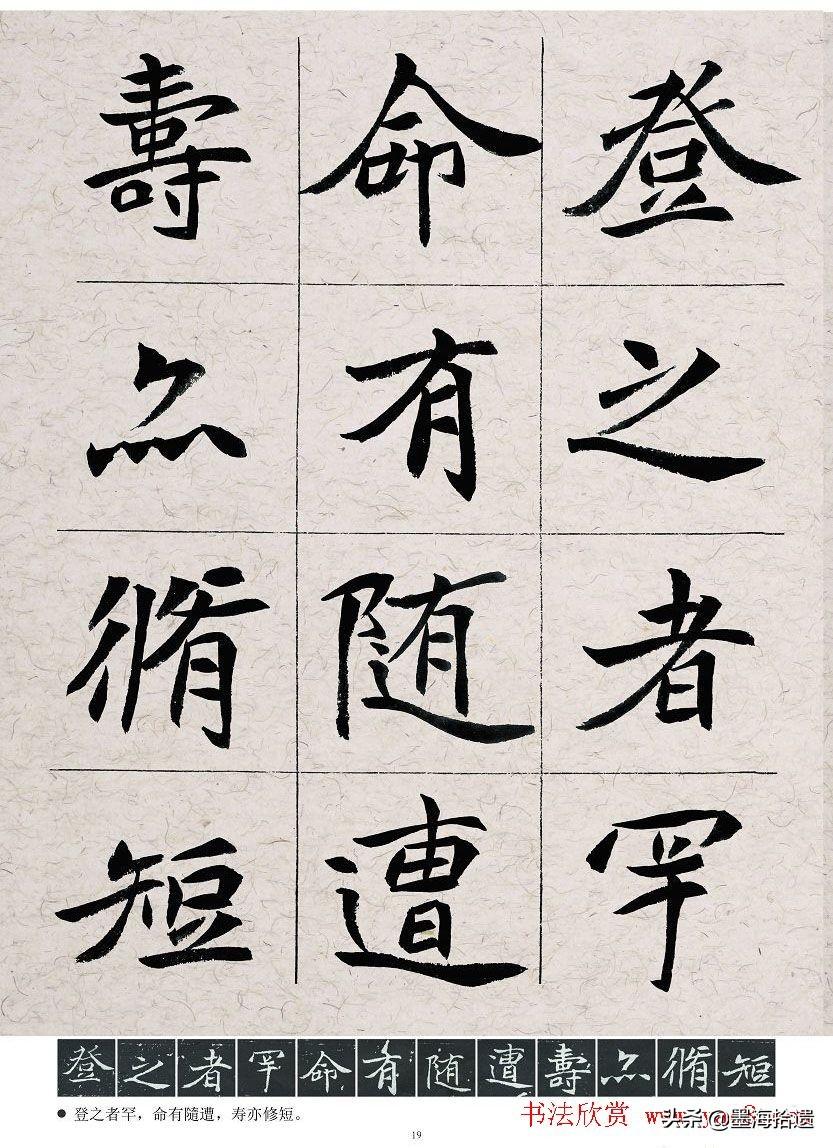 登之者罕
命有随遭
壽亦脩短
登之者罕命有随遭壽亦脩短
● 登之者罕，命有隨遭，寿亦修短。
书法欣赏
头条@墨海拾遗
19